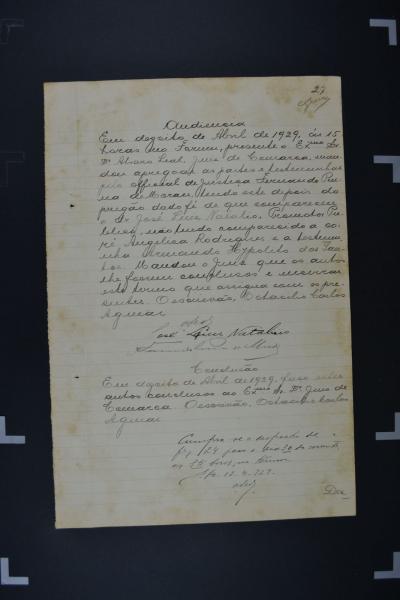 27
Audiencia
Em dezoito de Abril de 1929, ás 15
horas no Forum, presente o Exmo Sr.
Dr Alvaro Leal, Juiz de Comarca, man
dou apregoar as partes e testemunhas
pelo official de Justiça Fernando Pin
de Moraes, tendo este depois do
pregão dado fé de que compareceu
o Dr José Pires Natalio, Promotor Pu
blico, não tendo comparecido a co
ré Angelica Rodrigues e a testemu
nha Armando Hypolito dos San
tos. Mandou o Juiz que os autos
lhe fossem conclusos e encerrar
este termo que assigna com os pre
sentes. O escrivão, Octacilio Carlos
Aguiar
José Pires Natalio
Conclusão
Em dezoito de Abril de 1929, faço estes
autos conclusos ao Exmo Sr. Dr. Juiz de
Comarca. O escrivão, Octacilio Carlos
Aguiar
Cumpra-se o despacho de
fls 124 para o
as 15 horas, no Forum
Da